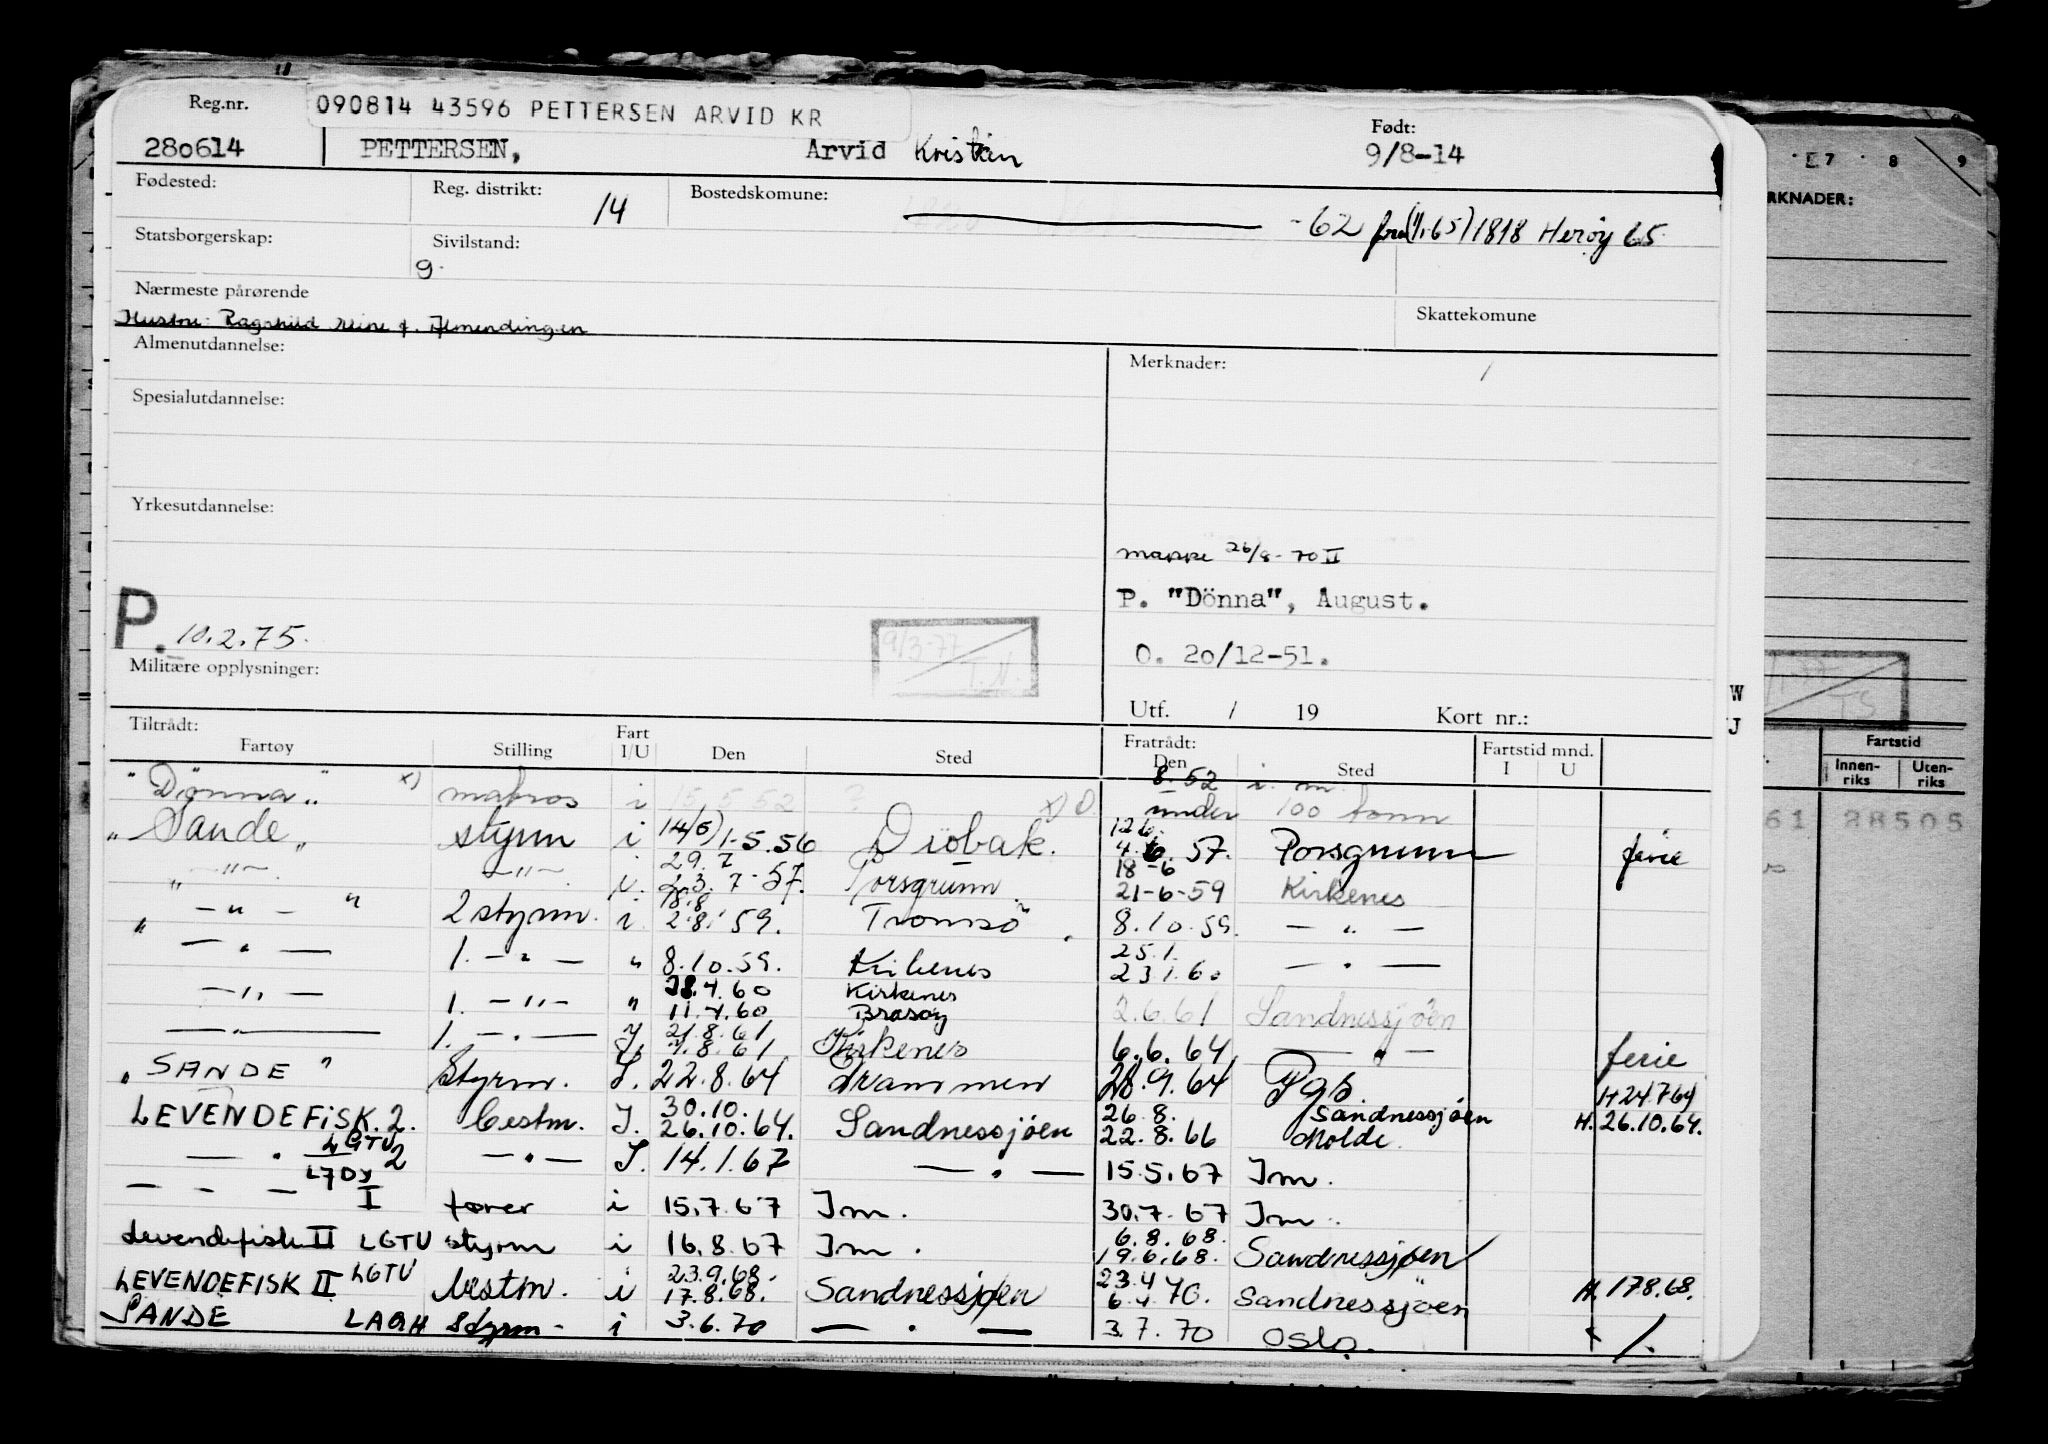 Reg.nr. 090814 43596 PETTERSEN ARVID KR Født:
280614 PETTERSEN, Arvid Kristian 9/8-14
Fødested: Reg. distrikt: 14 Bostedskomune: -62 fra (1/1-65) 1818 Herøy 65
Statsborgerskap: Sivilstand:
9
Nærmeste pårørende
Hustru: Ragnhild f. Almendingen Skattekomune
Almenutdannelse: Merknader: /
Spesialutdannelse:
Yrkesutdannelse:
mappe 26/8-70 II
P. "Dönna", August.
P. 10.2.75. 9/3-77 T.N.
O. 20/12-51.
Militære opplysninger:
Utf. / 19 Kort nr.:
Tiltrådt: Fratrådt:
Fartøy Stilling Fart I/U Den Sted Den Sted Fartstid mnd. I U
"Dönna" x) matros i 15.5.52 ? 8.52 i. m.
x) under 100 tonn
"Sande" styrm i 14/5) 1-5.56 Drøbak. 12.6. 4.6.57. Porsgrunn ferie
" -"- " -"- i. 29.7 23.7-57. Porsgrunn 18-6 21-6-59 Kirkenes
" -"- " 2 styrm. i. 18.8 2.8.59. Tromsö 8.10.59. - " -
- " - 1. - " - " 8.10.59. Kirkenes 25.1. 23.1.60 - " -
- " - 1. - " - " 28.4.60 Kirkenes 11.4.60 Brasøy 2.6.61 Sandnessjöen
- " - 1. - " - I. 21.8.61 7.8.61 Kirkenes 6.6.64 - " - ferie
"SANDE" Styrm. I. 22.8.64 Drammen 28.9.64 Pgs. H 24.7.64
LEVENDEFISK. 2. Bestm. I. 30.10. 26.10.64. Sandnessjöen 26.8. Sandnessjöen 22.8.66 Molde. H. 26.10.64.
- " - LGTU 2 - " - I. 14.1.67 - " - 15.5.67 Im.
- - - I fører i 15.7.67 Im. 30.7.67 Im.
Levendefisk II LGTU styrm i 16.8.67 Im. 6.8.68. 19.6.68. Sandnessjøen
LEVENDEFISK II LGTU Bestm. i 23.9.68. 17.8.68. Sandnessjøen 23.4 6.4.70. Sandnessjöen H. 17.8.68.
SANDE LAQH Styrm- i 3.6.70 - " - 3.7.70 Oslo. /.
7 8 9
RKNADER:
W
J
TS
Fartstid
Innen-riks Uten-riks
61 28505